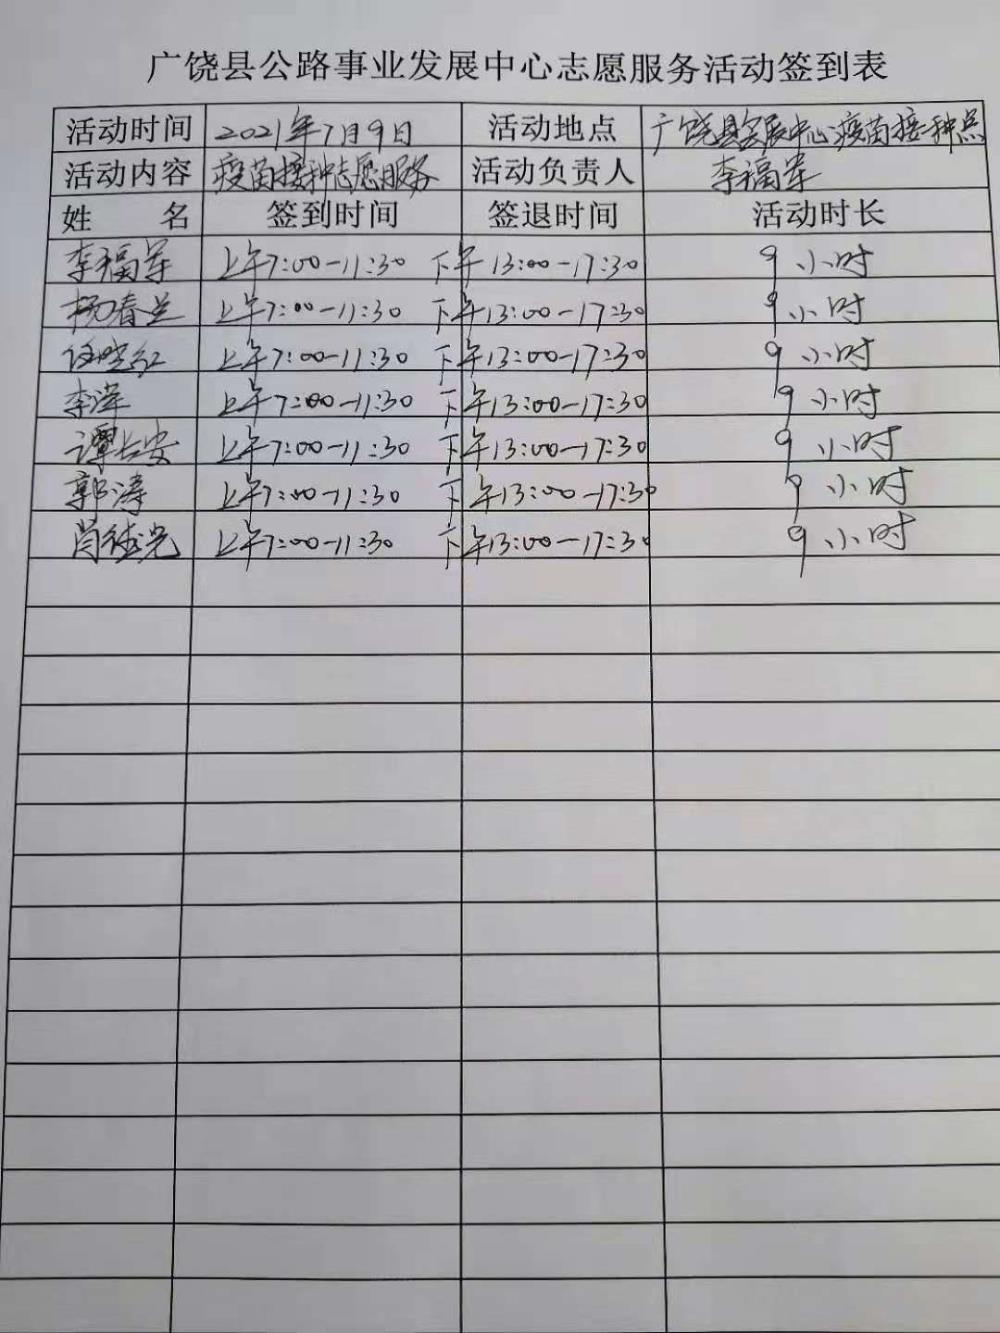 广饶县公路事业发展中心志愿服务活动签到表
活动时间 2021年7月9日 活动地点 广饶县会展中心疫苗接种点
活动内容 疫苗接种志愿服务 活动负责人 李福军
姓 名 签到时间 签退时间 活动时长
李福军 上午7:00-11:30 下午13:00-17:30 9小时
杨春兰 上午7:00-11:30 下午13:00-17:30 9小时
任晓红 上午7:00-11:30 下午13:00-17:30 9小时
李洋 上午7:00-11:30 下午13:00-17:30 9小时
谭长安 上午7:00-11:30 下午13:00-17:30 9小时
郭涛 上午7:00-11:30 下午13:00-17:30 9小时
上午7:00-11:30 下午13:00-17:30 9小时